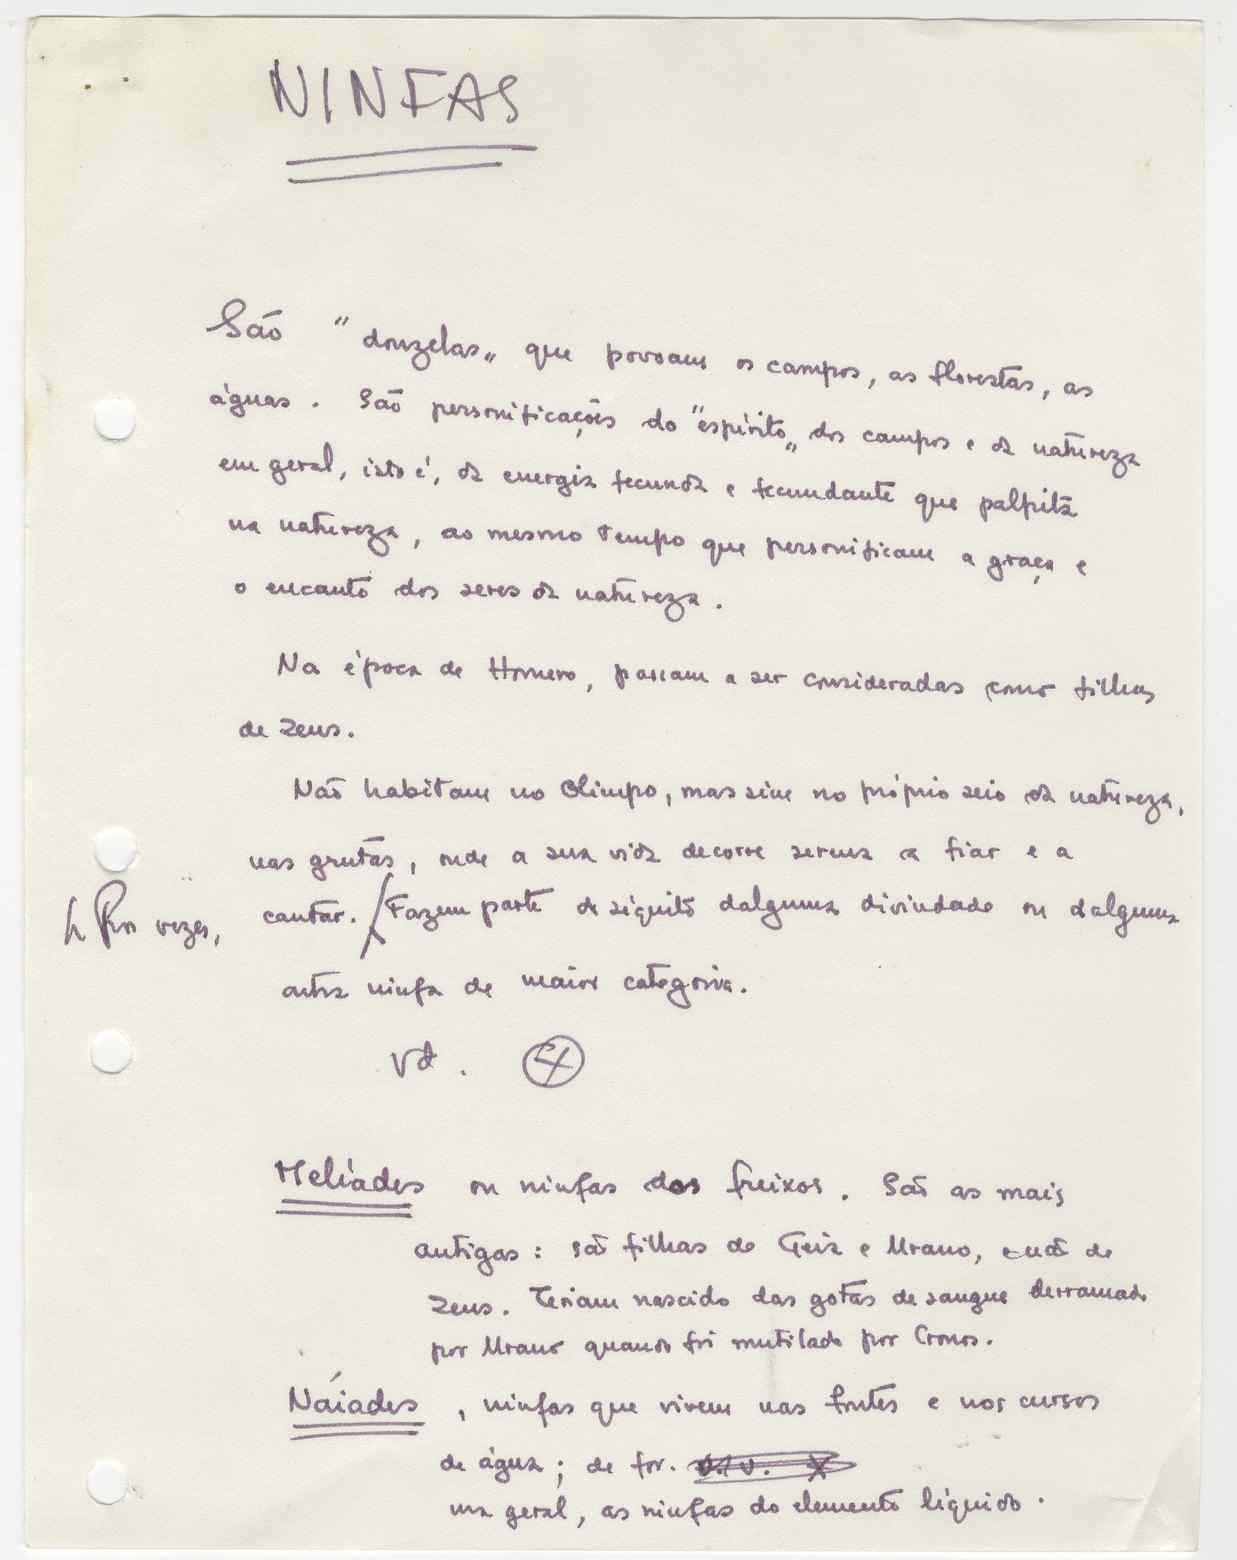 NINFAS
São "donzelas" que povoam os campos, as florestas, as
águas. São personificações do "espírito" dos campos e da natureza
em geral, isto é, da energia fecunda e fecundante que palpita
na natureza, ao mesmo tempo que personificam a graça e
o encanto dos seres da natureza.
Na época de Homero, passam a ser consideradas como filhas
de Zeus.
Não habitam no Olimpo, mas sim no próprio seio da natureza,
nas grutas, onde a sua vida decorre serena a fiar e a
cantar. / Fazem parte do séquito dalguma divindade ou dalguma
Por vezes,
outra ninfa de maior categoria.
Vd. 4
Melíades ou ninfas dos freixos. São as mais
antigas: são filhas de Geia e Urano, e não de
Zeus. Teriam nascido das gotas de sangue derramado
por Urano quando foi mutilado por Cronos.
Náiades, ninfas que vivem nas fontes e nos cursos
de água; de for.
ma geral, as ninfas do elemento líquido.